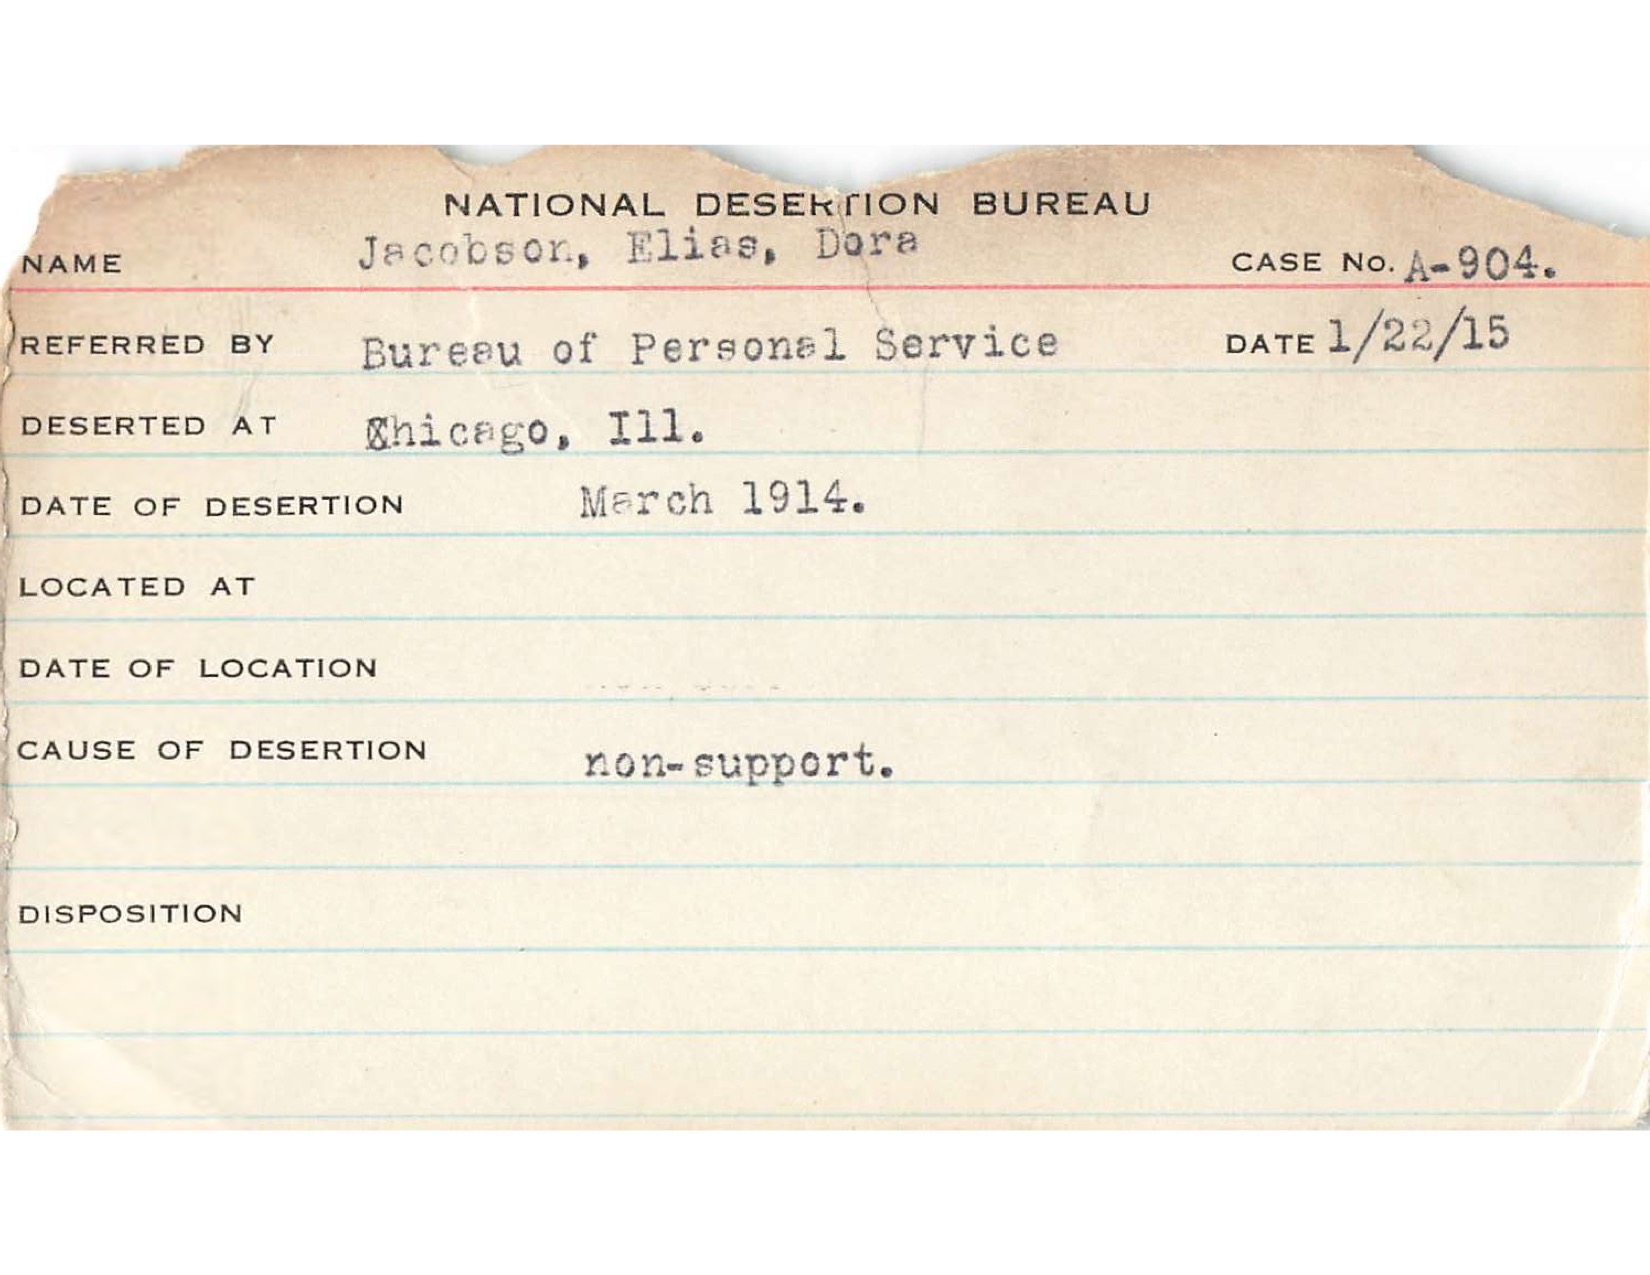 NATIONAL DESERTION BUREAU
NAME Jacobson, Elias, Dora CASE No. A-904.
REFERRED BY Bureau of Personal Service DATE 1/22/15
DESERTED AT Chicago, Ill.
DATE OF DESERTION March 1914.
LOCATED AT
DATE OF LOCATION
CAUSE OF DESERTION non-support.
DISPOSITION